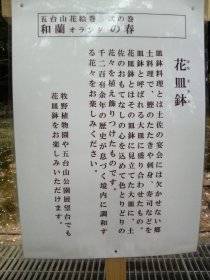 五台山花絵巻 其弐の巻
和蘭オランダの春
花皿鉢
皿鉢料理とは土佐の宴会には欠かせない郷
土料理で、鰹のたたきや刺身、寿司などを
皿鉢と呼ばれる大皿に盛り合わせたもの。
花皿鉢とはその皿鉢に見立てた大皿に、土
佐のおもてなしの心を込めて色とりどりの
花々を植え飾りつけたものです。
千二百有余年の歴史が息づく境内に調和す
る花々をお楽しみください。
牧野植物園や五台山公園展望台でも
花皿鉢をお楽しみいただけます。